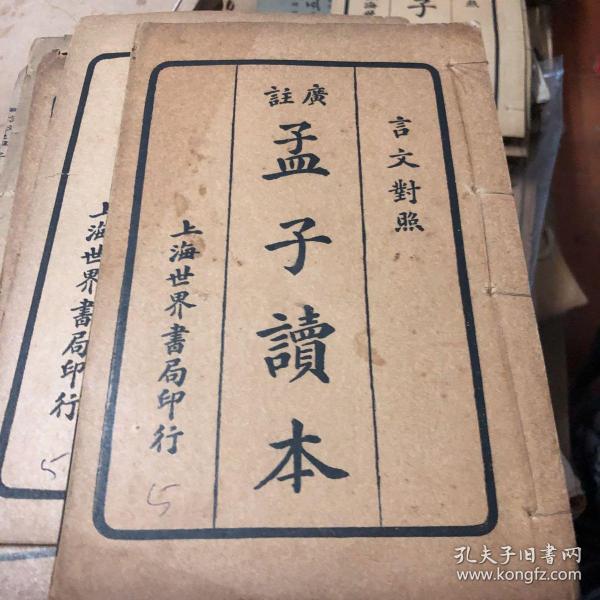 言文對照
廣註
孟子讀本
上海世界書局印行
5
上海世界書局印行
5
子
照
孔夫子旧书网
www.kongfz.com